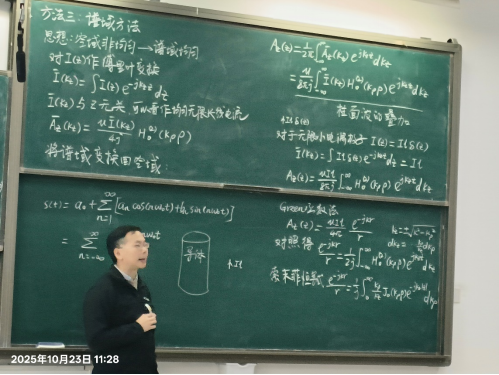 方法三：谱域方法
思想：空域非均匀→谱域均匀
对I(z)作傅里叶变换
Ĩ(k_z) = ∫I(z)e^{-jk_z z}dz
Ĩ(k_z)与z无关，可以看作均匀无限长线电流
Ã_z(k_z) = μĨ(k_z)/4j H_0^{(2)}(k_ρρ)
将谱域变换回空域：
A_z(z) = 1/2π ∫Ã_z(k_z)e^{jk_z z}dk_z
= μ/8πj ∫_{-∞}^{∞} Ĩ(k_z)H_0^{(2)}(k_ρρ)e^{jk_z z}dk_z
柱面波的叠加
↑Ilδ(z)
对于无限小电偶极子 I(z) = Ilδ(z)
Ĩ(k_z) = ∫Ilδ(z)e^{-jk_z z}dz = Il
A_z(z) = μIl/8πj ∫_{-∞}^{∞} H_0^{(2)}(k_ρρ)e^{jk_z z}dk_z
s(t) = a_0 + ∑_{n=1}^{∞}[a_n cos(nω_0t) + b_n sin(nω_0t)]
= ∑_{n=-∞}^{∞} nω_0t
导体
↑Il
Green函数法
A_z(r) = μIl/4π e^{-jkr}/r
对照得 e^{-jkr}/r = 1/2j ∫_{-∞}^{∞} H_0^{(2)}(k_ρρ)e^{jk_z z}dk_z
索末菲恒等式 e^{-jkr}/r = 1/j ∫_0^{∞} k_ρ/k_z J_0(k_ρρ)e^{-jk_z|z|}dk_ρ
2025年10月23日 11:28